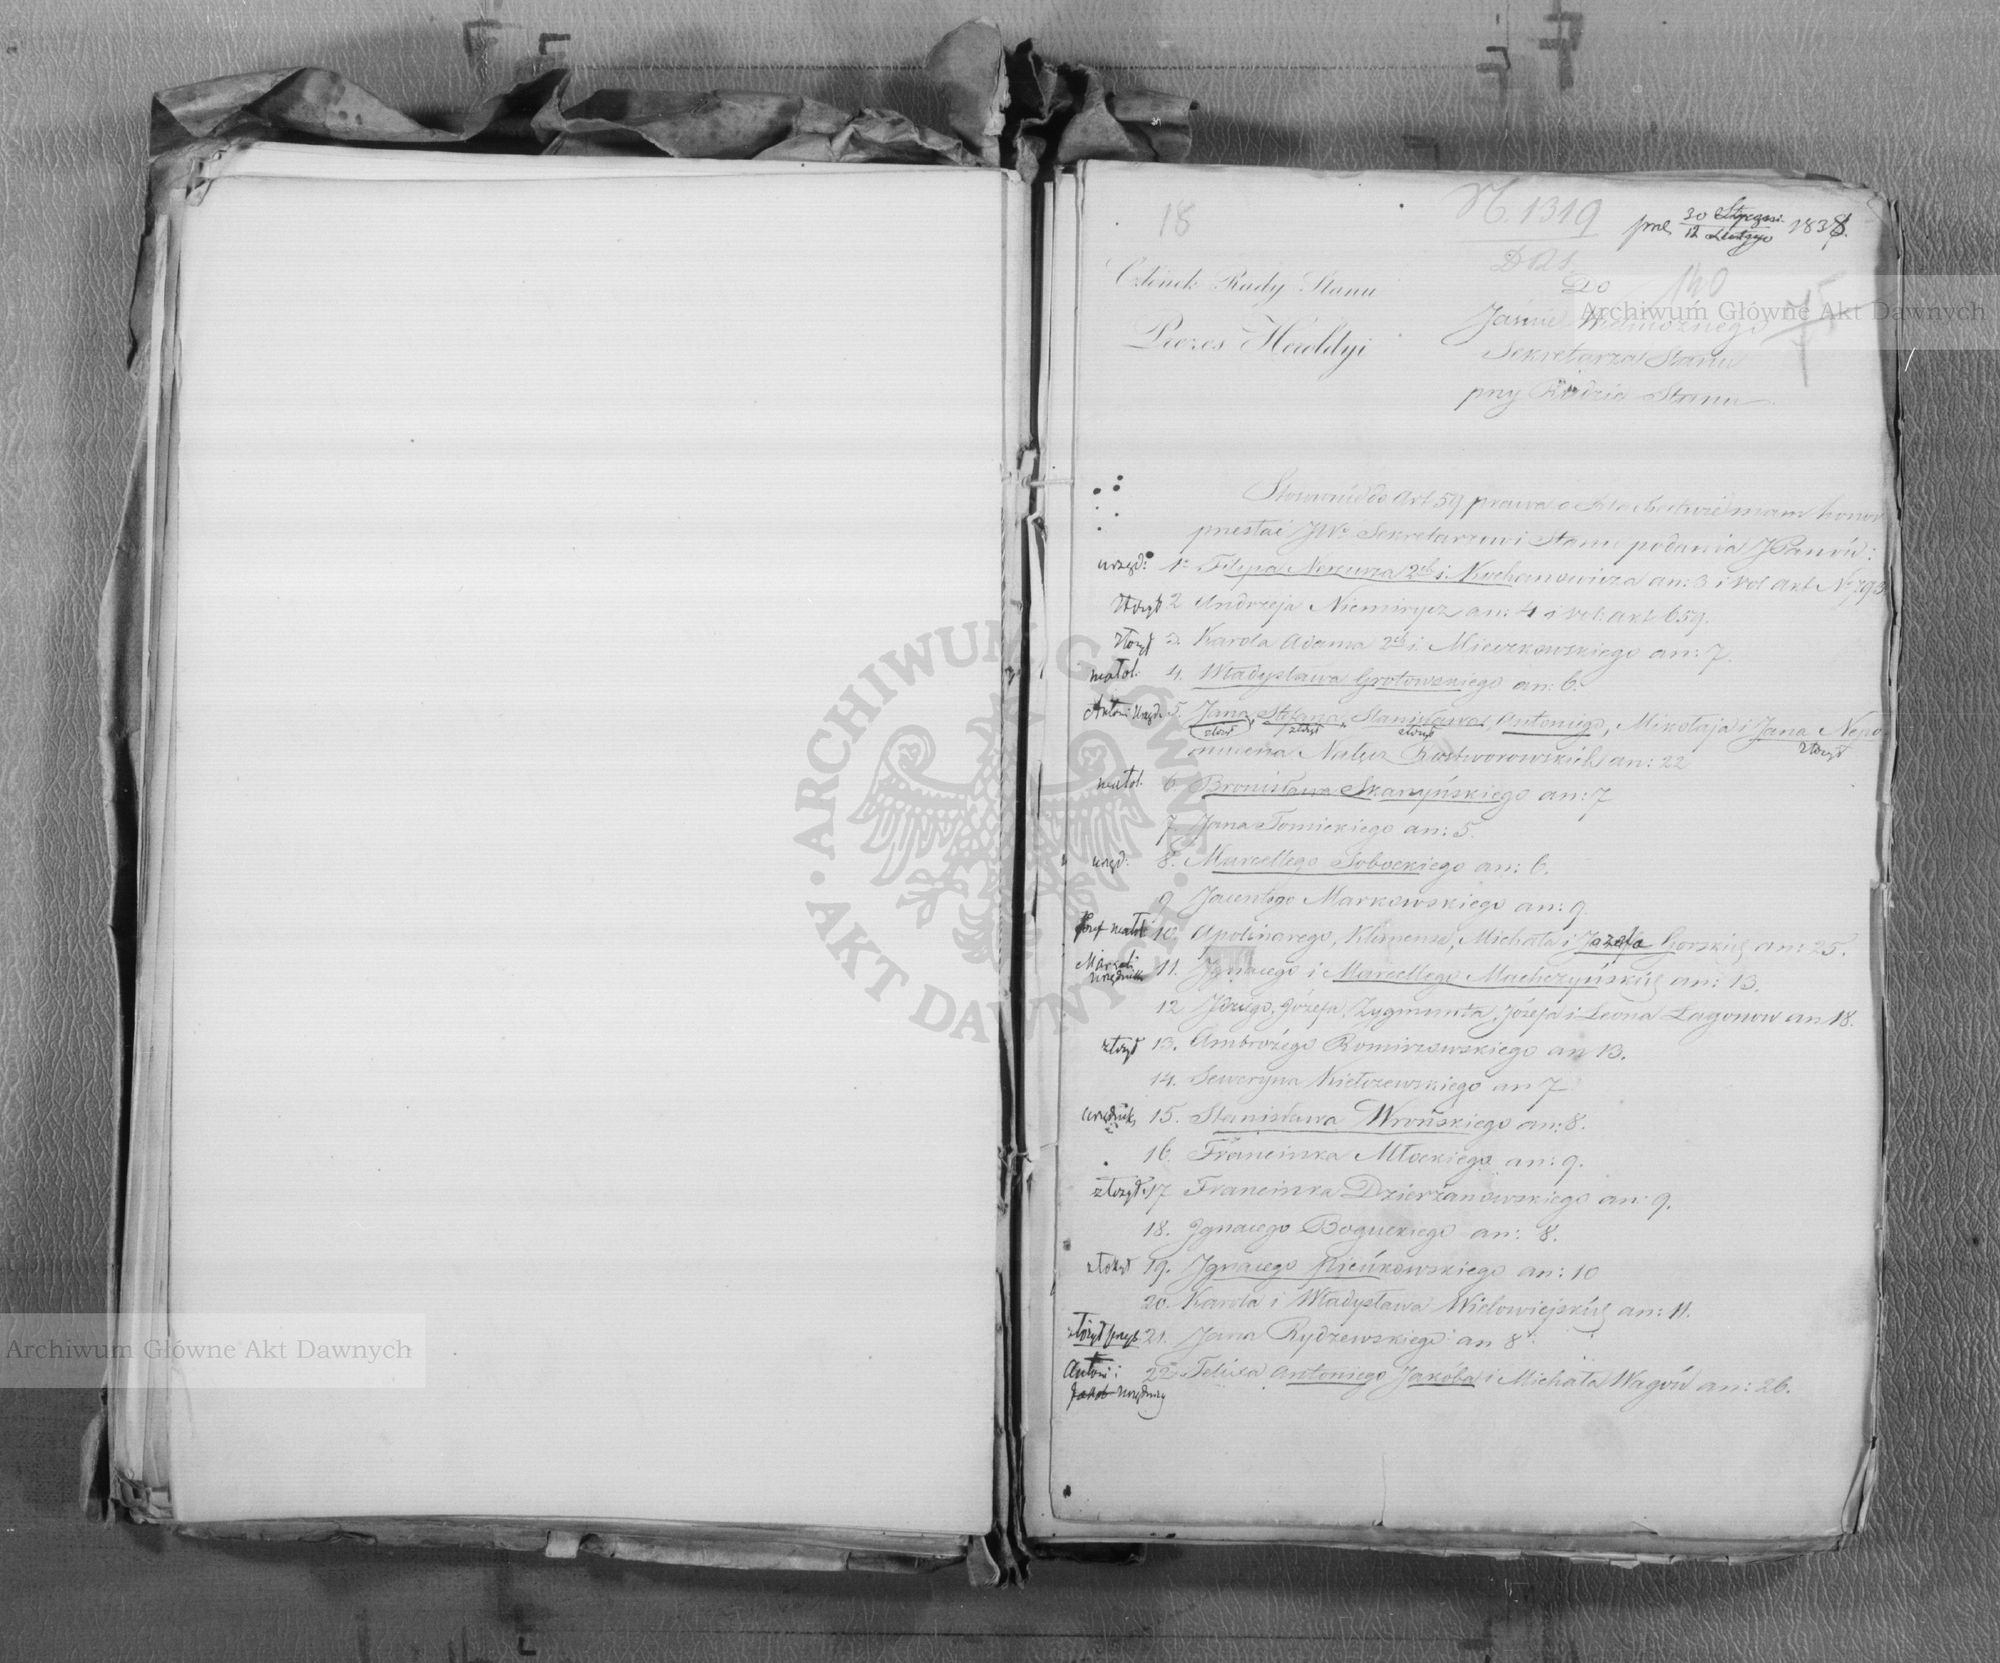 18
N. 1319
prez 30 Stycznia 1838.
12 Lutego
Do
140
Członek Rady Stanu
Jaśnie Wielmożnego
Prezes Heroldyi
Sekretarza Stanu
przy Radzie Stanu
Stosownie do Art 59 prawa o Szlachectwie mam honor
przesłać JWu Sekretarzowi Stanu podania JPanów:
urzęd: 1o Filipa Nereusza 2ch i. Kochanowicza an: 3 i vol akt No 793
złożył 2 Andrzeja Niemirycz an: 4 i vol: akt 659.
złożył 3. Karola Adama 2ch i. Mieczkowskiego an: 7.
małol. 4. Władysława Grotowskiego an: 6.
Antoni Urzęd. 5. Jana, Stefana, Stanisława, Antoniego, Mikołaja i Jana Nepo-
złożył złożył złożył złożył
mucena Nałęcz Rostworowskich an: 22
małol. 6. Bronisława Skarzyńskiego an: 7
7. Jana Tomickiego an: 5.
urzęd: 8. Marcellego Sobockiego an: 6.
9 Jacentego Markowskiego an: 9
Józef małol 10. Apolinarego, Klimensa, Michała i Józefa Gorskich an: 25.
Marceli urzędnik 11. Ignacego i Marcellego Machczyńskich an: 13.
12 Idziego, Józefa, Zygmunta, Józefa i Leona Łagonow an 18.
złożył 13. Ambrożego Romiszewskiego an 13.
14. Seweryna Kiełczewskiego an 7
urzędnik 15. Stanisława Wrońskiego an: 8.
16. Franciszka Młockiego an: 9.
złożył 17 Franciszka Dzierżanowskiego an: 9.
18. Ignacego Boguckiego an: 8.
złożył 19. Ignacego Pieńkowskiego an: 10
20. Karola i Władysława Wielowiejskich an: 11.
złożył przys 21. Jana Rydzewskiego an 8
Antoni i 22 Felixa Antoniego Jakóba i Michała Wagów an: 26.
Jakób urzędnicy
Archiwum Główne Akt Dawnych
Archiwum Główne Akt Dawnych
ARCHIWUM GŁÓWNE AKT DAWNYCH